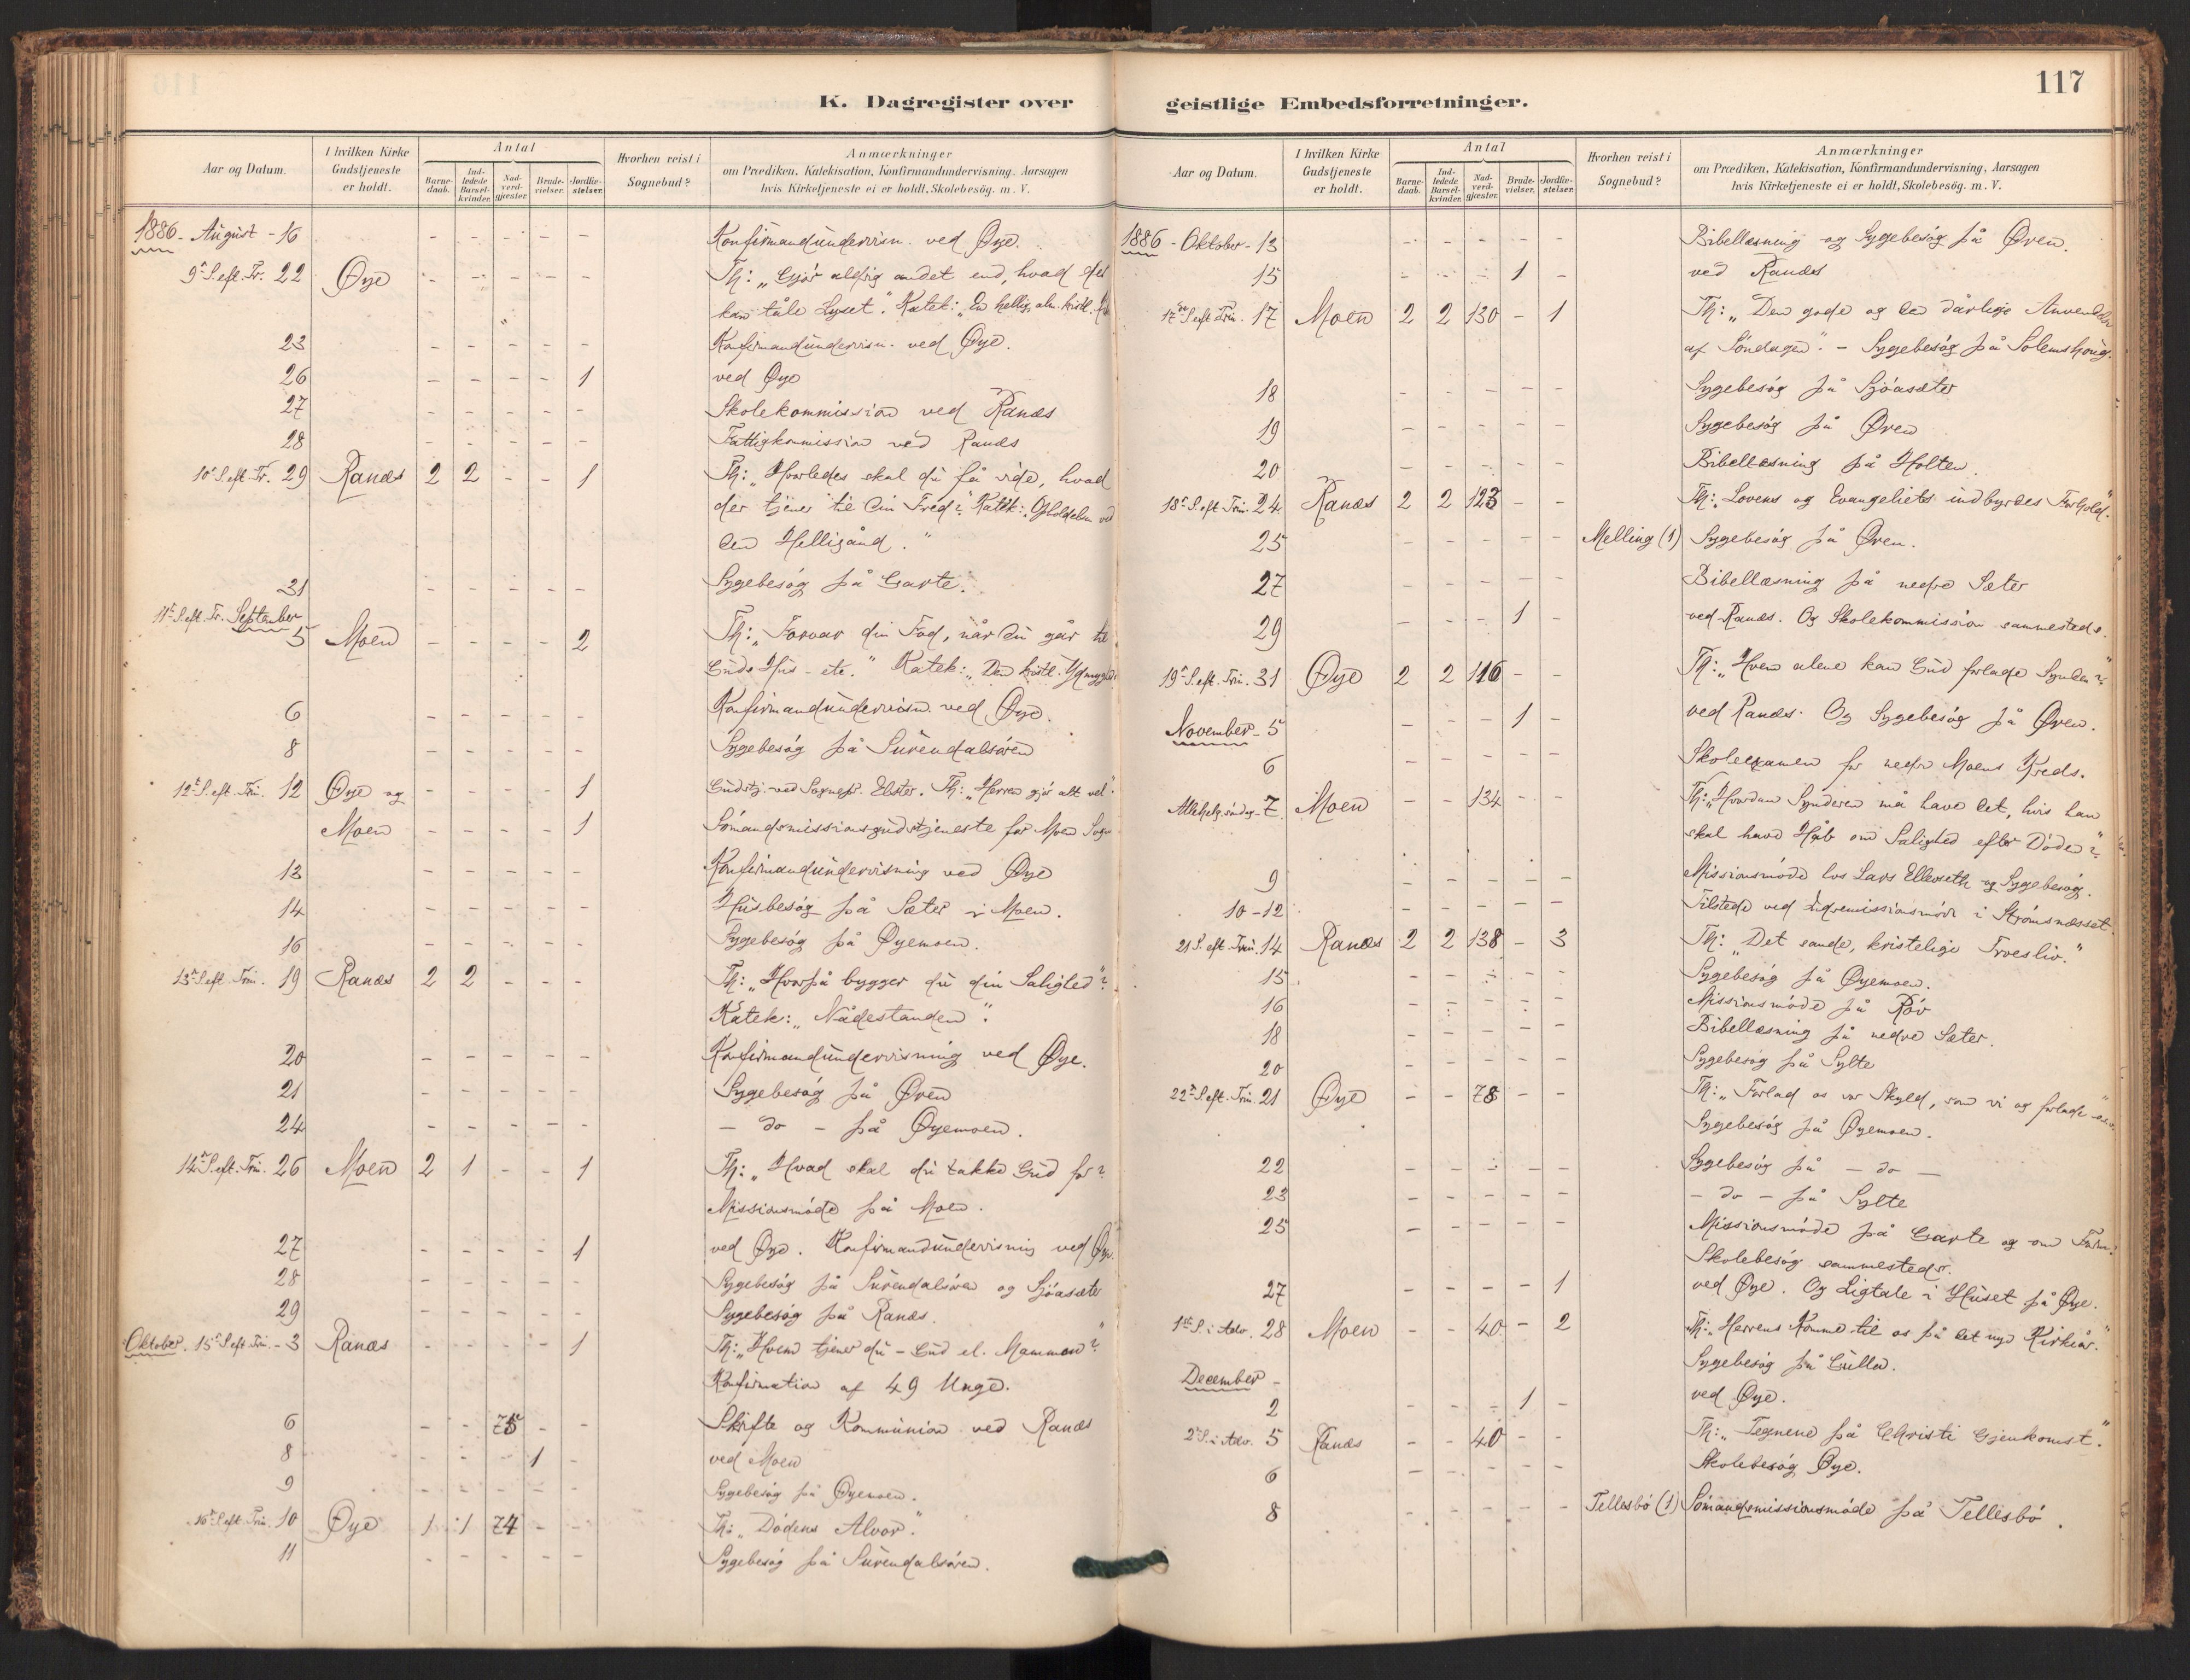 K. Dagregister over
Aar og Datum.
I hvilken Kirke Gudstjeneste er holdt.
Antal
Barne-daab.
Ind-ledede Barsel-kvinder.
Nad-verd-gjæster.
Brude-vielser.
Jordfæ-stelser.
Hvorhen reist i Sognebud?
Anmærkninger
om Prædiken, Katekisation, Konfirmandundervisning, Aarsagen
hvis Kirketjeneste ei er holdt, Skolebesög. m. V.
1886. August - 16 - - - - - Konfirmandundervisn. ved Øye.
9de S. eft. Tr. 22 Øye - - - - - Th: „Gjør aldrig andet end, hvad der
kan tåle Lyset". Katek: „En hellig, alm. kristl.
23 - - - - - Konfirmandundervisn. ved Øye.
26 - - - - 1 ved Øye
27 - - - - - Skolekommission ved Ranæs
28 - - - - - Fattigkommission ved Ranæs
10de S. eft. Tr. 29 Ranæs 2 2 - - 1 Th: „Hvorledes skal du få vide, hvad
der tjener til din Fred?" Katek: „Opholdelsen ved
den Helligånd."
31 - - - - - Sygebesøg på Garte.
11te S. eft. Tr. September
5 Moen - - - - 2 Th: „Forvar din Fod, når du går til
Guds Hus - etc." Katek: „Den kristl.
6 - - - - - Konfirmandundervisn. ved Øye.
8 - - - - - Sygebesøg på Surendalsøren
12te S. eft. Trin. 12 Øye og - - - - 1 Gudstj. ved Sognepr. Elster. Th: „Herren gjør alt vel".
Moen - - - - 1 Sømandsmissionsgudstjeneste for Moen Sogn
13 - - - - - Konfirmandundervisning ved Øye
14 - - - - - Husbesøg på Sæter i Moen.
16 - - - - - Sygebesøg på Øyemoen.
13de S. eft. Trin. 19 Ranæs 2 2 - - - Th: „Hvorpå bygger du din Salighed"?
Katek: „Nådestanden".
20 - - - - - Konfirmandundervisning ved Øye.
21 - - - - - Sygebesøg på Øren
24 - - - - - - do - på Øyemoen.
14de S. eft. Trin. 26 Moen 2 1 - - 1 Th: „Hvad skal du takke Gud for?
Missionsmøde på Moen.
27 - - - - 1 ved Øye. Konfirmandundervisning ved Øye.
28 - - - - - Sygebesøg på Surendalsøren og Sjøasæter
29 - - - - - Sygebesøg på Ranæs.
Oktober. 15de S. eft. Trin. - 3 Ranæs - - - - 1 Th: „Hvem tjener du - Gud el. Mammon"?
Konfirmation af 49 Unge.
6 - - 75 - - Skrifte og Kommunion ved Ranæs
8 - - - 1 - ved Moen
9 - - - - - Sygebesøg på Øyemoen.
16de S. eft. Trin. 10 Øye 1 1 74 - - Th: „Dødens Alvor".
11 - - - - - Sygebesøg på Surendalsøren.
117
geistlige Embedsforretninger.
Aar og Datum.
I hvilken Kirke Gudstjeneste er holdt.
Antal
Barne-daab.
Ind-ledede Barsel-kvinder.
Nad-verd-gjæster.
Brude-vielser.
Jordfæ-stelser.
Hvorhen reist i Sognebud?
Anmærkninger
om Prædiken, Katekisation, Konfirmandundervisning, Aarsagen
hvis Kirketjeneste ei er holdt, Skolebesög. m. V.
1886 - Oktober - 13 - - - - - Bibellæsning og Sygebesøg på Øren.
15 - - - 1 - ved Ranæs
17de S. eft. Trin. 17 Moen 2 2 130 - 1 Th: „Den gode og den dårlige Anvendelse
af Søndagen". - Sygebesøg på Solemshoug.
18 - - - - - Sygebesøg på Sjøasæter
19 - - - - - Sygebesøg på Øren
20 - - - - - Bibellæsning på Holten.
18de S. eft. Trin. 24 Ranæs 2 2 123 - - Th: „Lovens og Evangeliets indbyrdes Forhold".
25 - - - - - Melling (1) Sygebesøg på Øren.
27 - - - - - Bibellæsning på nedre Sæter
29 - - - 1 - ved Ranæs. Og Skolekommission sammesteds.
19de S. eft. Trin. 31 Øye 2 2 116 - - Th: „Hvem alene kan Gud forlade Synden"?
November - 5 - - - 1 - ved Ranæs. Og Sygebesøg på Øren.
6 - - - - - Skoleexamen for nedre Moens Kreds.
Allehelg.søndag - 7 Moen - - 134 - - Th: „Hvordan Synderen må have det, hvis han
skal have Håb om Salighed efter Døden"?
9 - - - - - Missionsmøde hos Lars Ellevseth og Sygebesøg.
10-12 - - - - - Tilstede ved Indremissionsmøde i Strømsnæsset.
21 S. eft. Trin. 14 Ranæs 2 2 138 - 3 Th: „Det sande, kristelige Troesliv."
15 - - - - - Sygebesøg på Øyemoen.
16 - - - - - Missionsmøde på Røv
18 - - - - - Bibellæsning på nedre Sæter.
20 - - - - - Sygebesøg på Sylte
22de S. eft. Trin. 21 Øye - - 78 - - Th: „Forlad os vor Skyld, som vi og forlade - osv."
Sygebesøg på Øyemoen.
22 - - - - - Sygebesøg på - do -
23 - - - - - - do - på Sylte
25 - - - - - Missionsmøde på Garte og om Form.
Skolebesøg sammesteds.
27 - - - - 1 ved Øye. Og Ligtale i Huset på Øye.
1ste S. i Adv. 28 Moen - - 40 - 2 Th: „Herrens Komme til os på det nye Kirkeår."
Sygebesøg på Gulla.
December -
2 - - - 1 - ved Øye.
2de S. i Adv. 5 Ranæs - - 40 - - Th: „Tegnene på Christi Gjenkomst".
6 - - - - - Skolebesøg Øye.
8 - - - - - Tellesbø (1) Sømandsmissionsmøde på Tellesbø.